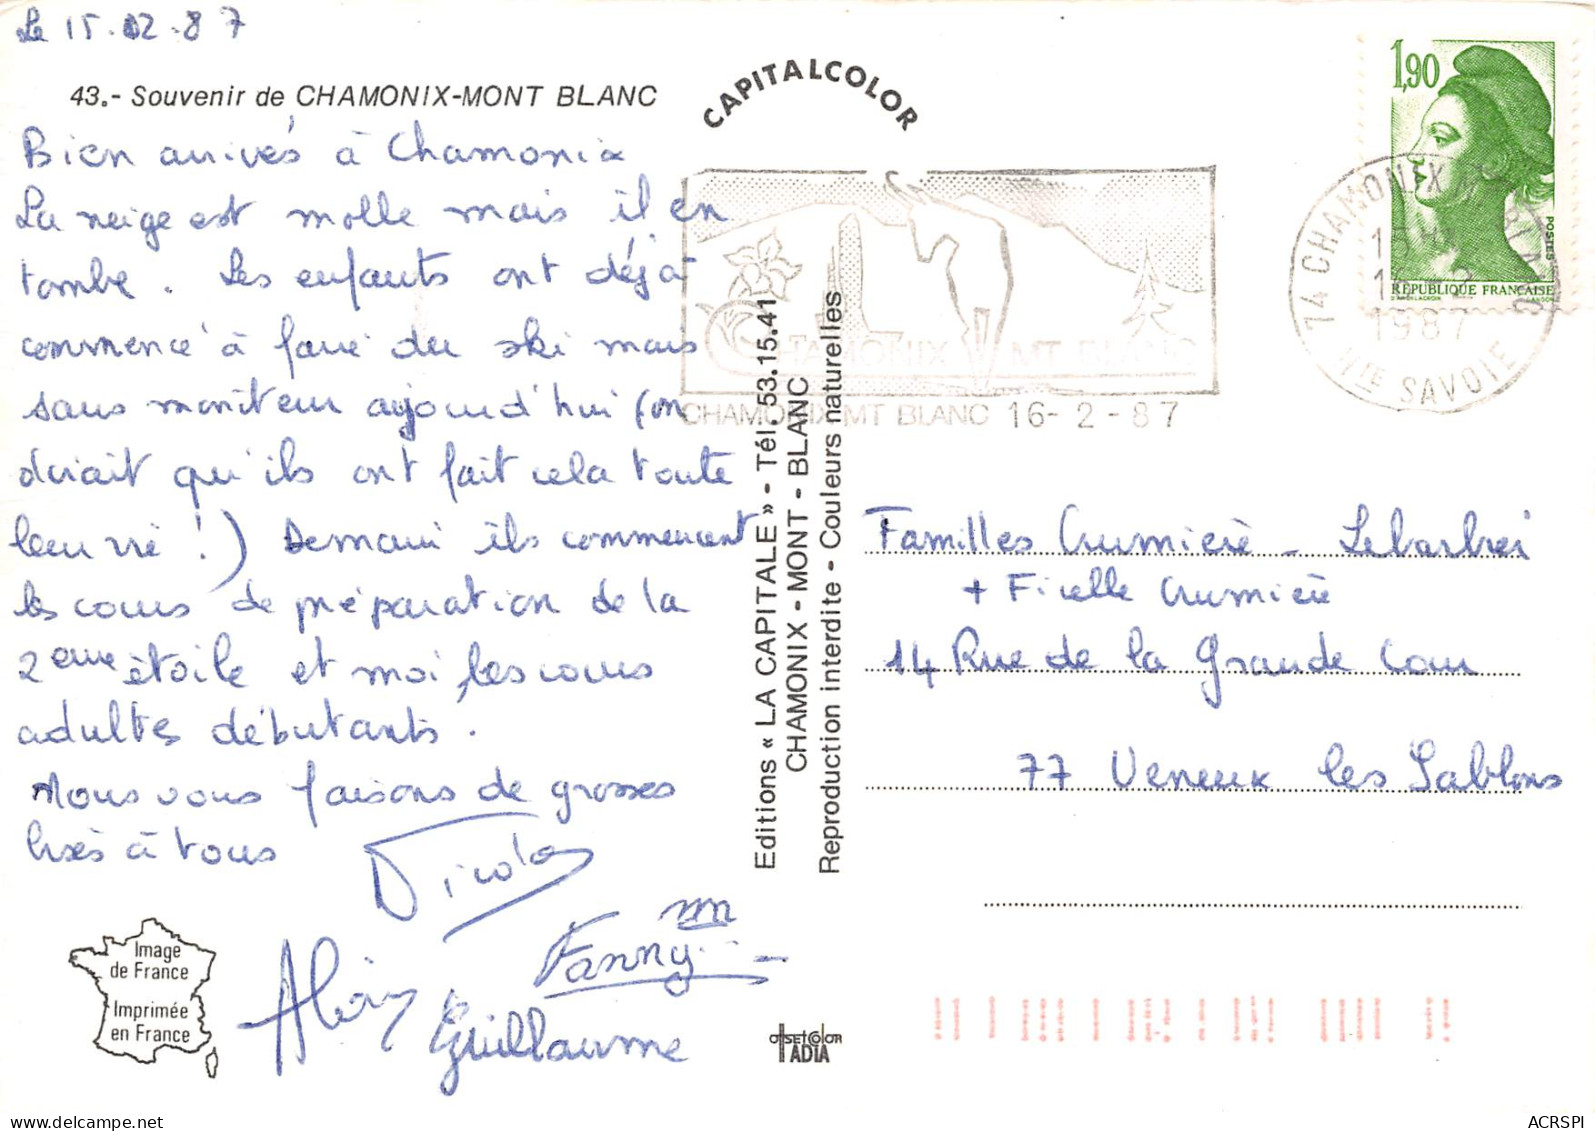 Le 15.02.87
43.- Souvenir de CHAMONIX-MONT BLANC
Bien arrivés à Chamonix
La neige est molle mais il en
tombe. Les enfants ont déjà
commencé à faire du ski mais
sans moniteur aujourd'hui (on
dirait qu'ils ont fait cela toute
leur vie !) Demain ils commencent
les cours de préparation de la
2ème étoile et moi, les cours
adultes débutants.
Nous vous faisons de grosses
bises à tous
Nicolas
Fanny
Guillaume
Image
de France
Imprimée
en France
CAPITALCOLOR
Editions « LA CAPITALE » - Tél. 53.15.41
CHAMONIX - MONT - BLANC
Reproduction interdite - Couleurs naturelles
OFFSETCOLOR
IADIA
CHAMONIX MT BLANC
CHAMONIX MT BLANC 16-2-87
1,90
POSTES
RÉPUBLIQUE FRANÇAISE
74 CHAMONIX MT BLANC
1987
HTE SAVOIE
Familles Crumière - Lebarbier
+ Ficelle Crumière
14 Rue de la Grande Cour
77 Veneux les Sablons
ACRSPI